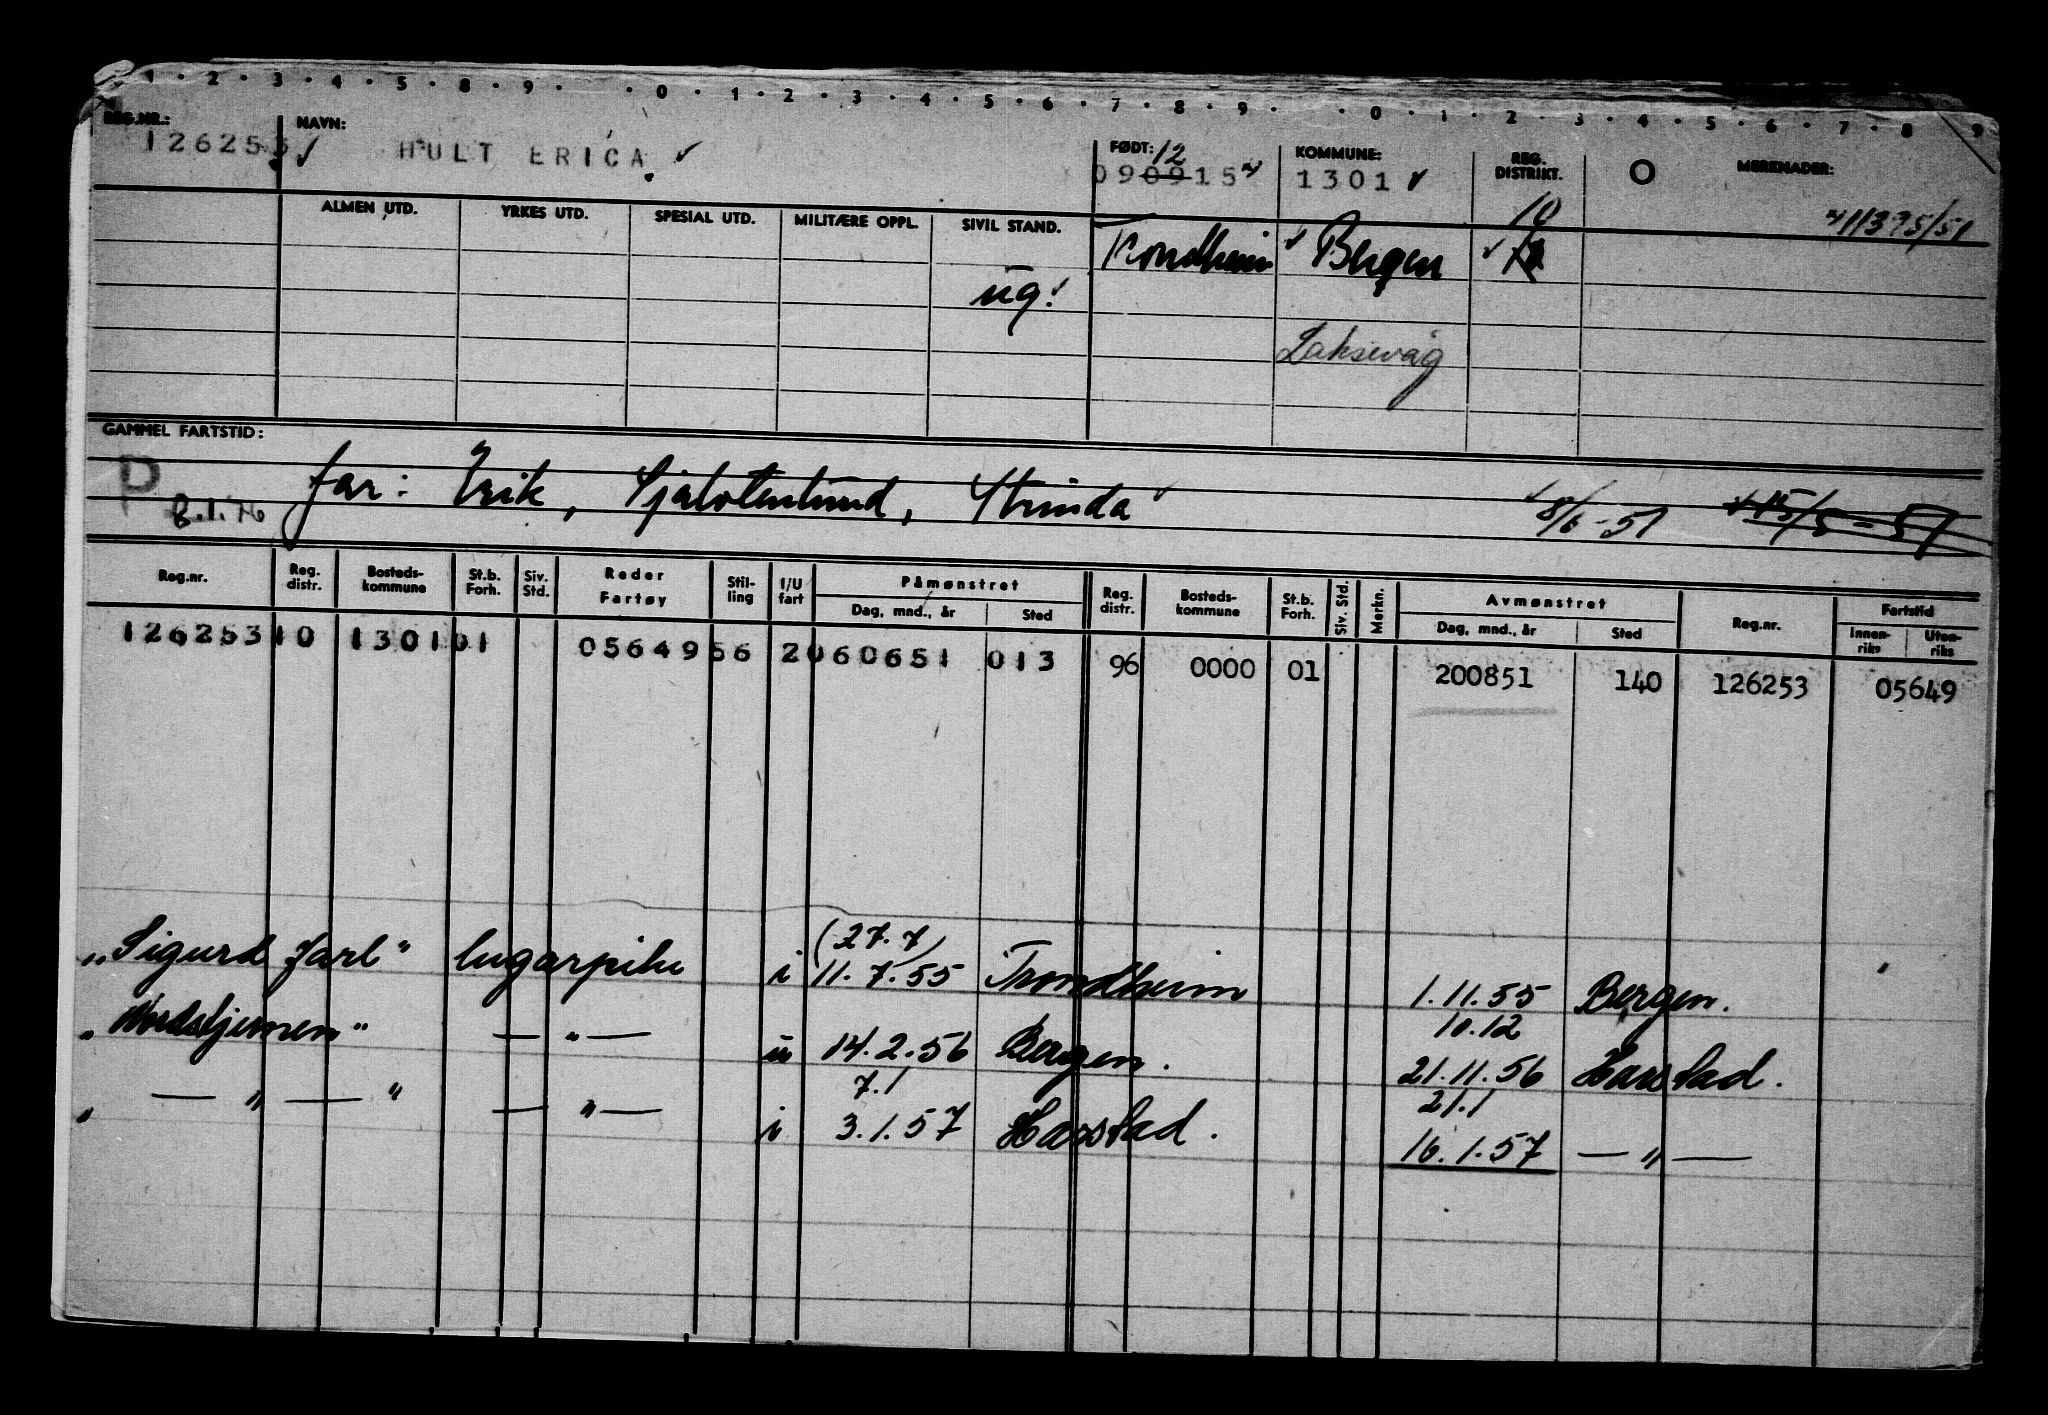 1 · 2 · 3 · 4 · 5 · 8 · 9 · · 0 · 1 · 2 · 3 · 4 · 5 · 6 · 7 · 8 · 9 · · 0 · 1 · 2 · 3 · 4 · 5 · 6 · 7 · 8 · 9
REG.NR.: NAVN: FØDT: KOMMUNE: REG. DISTRIKT. MERKNADER:
126253 ✓ HULT ERICA ✓ 12 090915 1301 ✓
10 11375/51
ALMEN UTD. YRKES UTD. SPESIAL UTD. MILITÆRE OPPL. SIVIL STAND.
Trondheim ✓ Bergen ✓
ug. ✓
Laksevåg
GAMMEL FARTSTID:
P far: Erik, Strinda ✓ ✓ 8/6-51 ✓ 15/5-51
Reg.nr. Reg. distr. Bosteds-kommune St.b. Forh. Siv. Std. Reder Fartøy Stil-ling I/U fart Påmønstret Dag, mnd., år Sted Reg. distr. Bosteds-kommune St.b. Forh. Siv. Std. Merkn. Avmønstret Dag, mnd., år Sted Reg.nr. Fartstid Innen-riks Uten-riks
126253 10 1301 01 05649 56 2 060651 013 96 0000 01 200851 140 126253 05649
(27.7)
„Sigurd Jarl" lugarpike i 11.7.55 Trondheim 1.11.55 Bergen.
10.12
„Nordstjernen" — „ — u 14.2.56 Bergen. 21.11.56 Harstad.
7.1 21.1
„ — „ — " — „ — i 3.1.57 Harstad. 16.1.57 — „ —